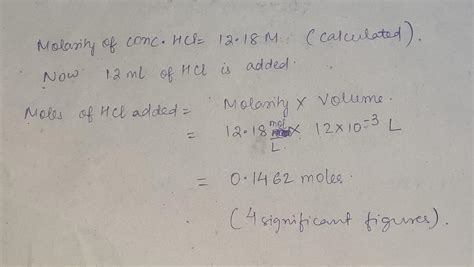 Molarity of conc. HCl = 12.18 M. (calculated).
Now 12 ml of HCl is added.
Moles of HCl added = Molarity x Volume.
= 12.18 mol/L x 12x10⁻³ L
= 0.1462 moles.
(4 significant figures).